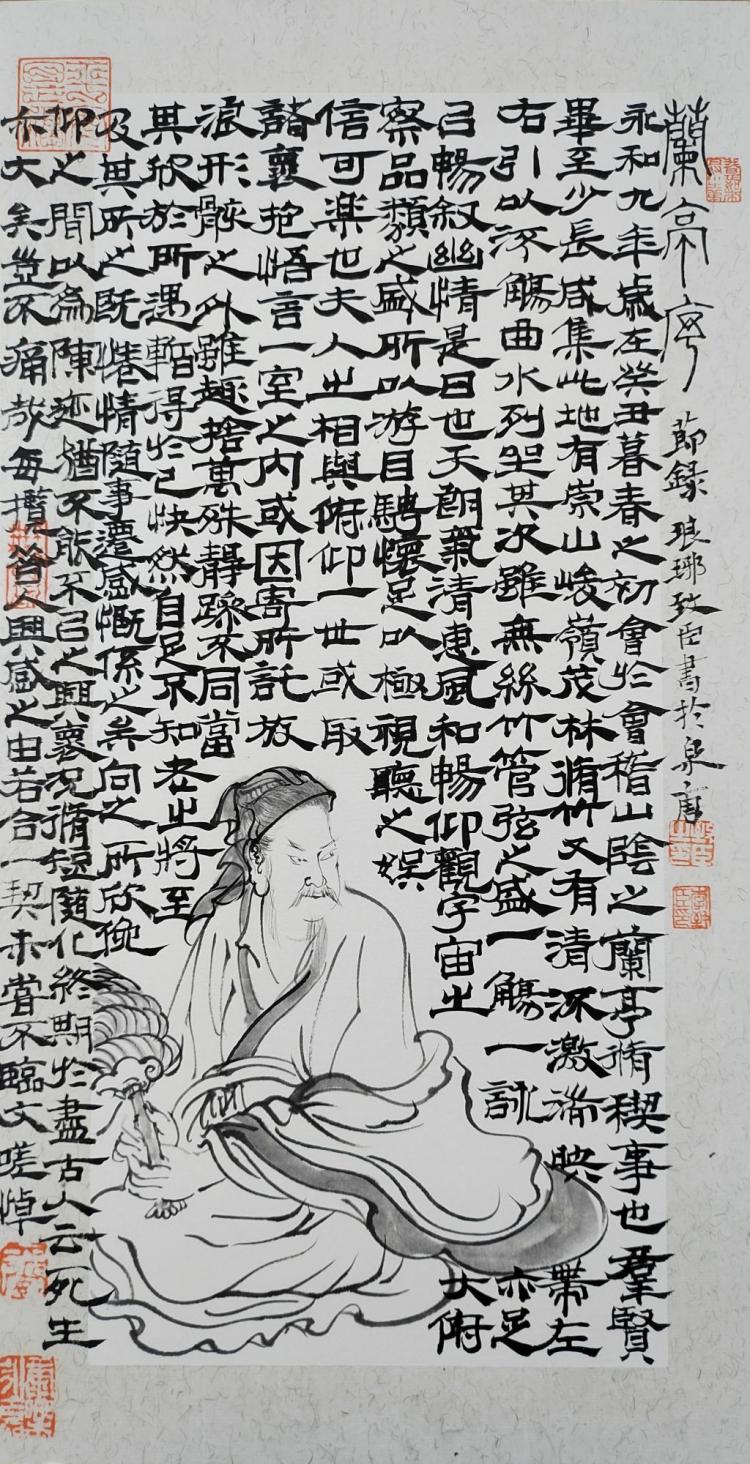 蘭亭序
節錄 琅琊致臣書於泉唐
永和九年歲在癸丑暮春之初會於會稽山陰之蘭亭脩稧事也羣賢
畢至少長咸集此地有崇山峻嶺茂林脩竹又有清流激湍映帶左
右引以流觴曲水列坐其次雖無絲竹管弦之盛一觴一詠亦足
以暢敘幽情是日也天朗氣清惠風和暢仰觀宇宙之大俯
察品類之盛所以游目騁懷足以極視聽之娛
信可楽也夫人之相與俯仰一世或取
諸襄抱悟言一室之內或因寄所託放
浪形骸之外雖趣捨萬殊靜躁不同當
其欣於所遇暫得於己快然自足不知老之將至
及其所之既惓情隨事遷感慨係之矣向之所欣俛
仰之間以為陳迹猶不能不以之興襄況脩短隨化終期於盡古人云死生
亦大矣豈不痛哉每攬昔人興感之由若合一契未嘗不臨文嗟悼